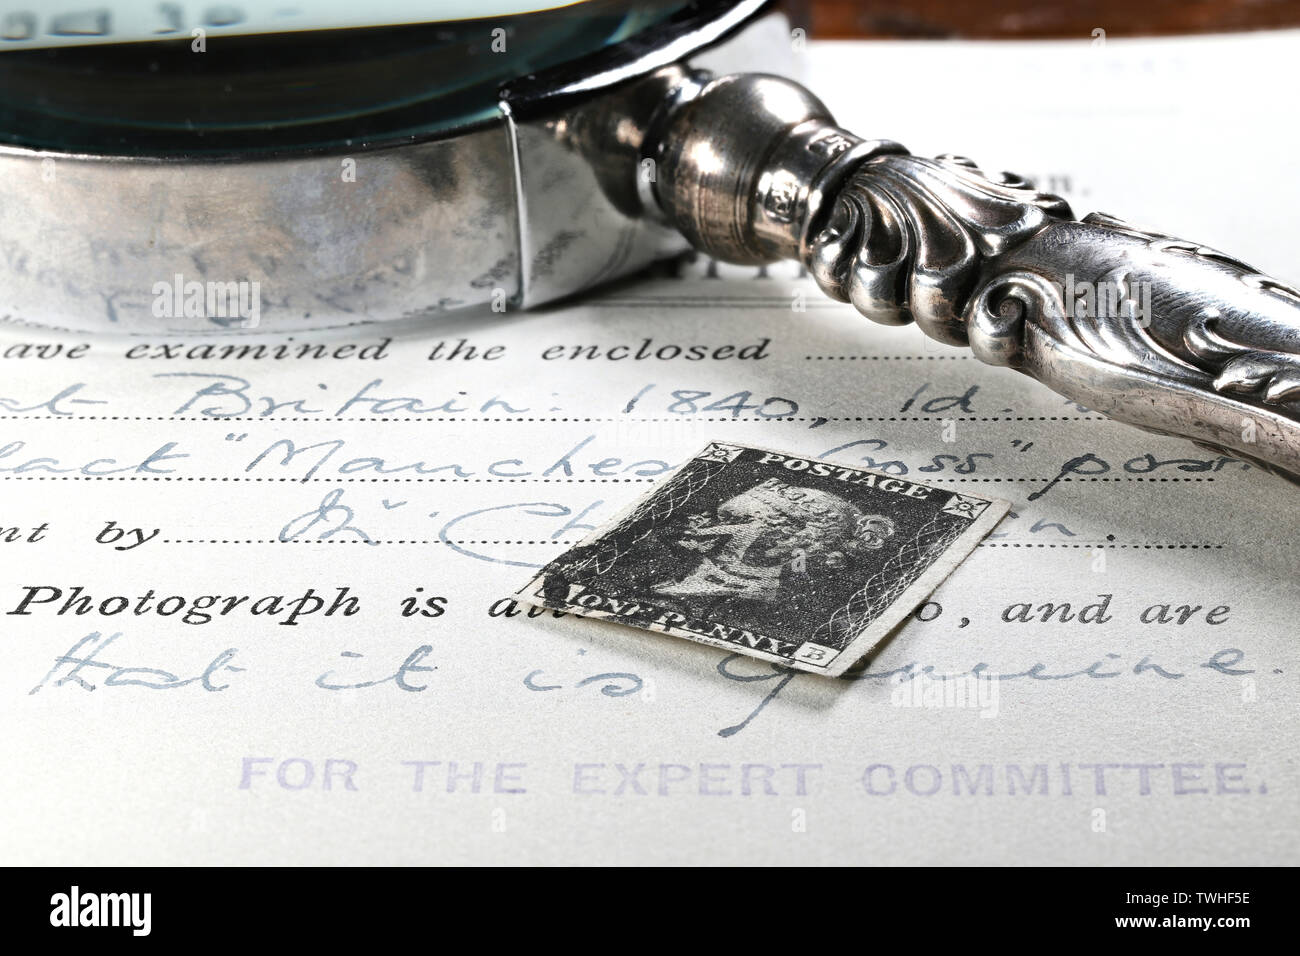 ave examined the enclosed
at Britain: 1840, 1d.
lack "Manches Cross" pos
nt by Mr. Ch n.
Photograph is at o, and are
that it is genuine.
FOR THE EXPERT COMMITTEE.
POSTAGE
ONE PENNY.
B
alamy
Image ID: TWHF5E
www.alamy.com